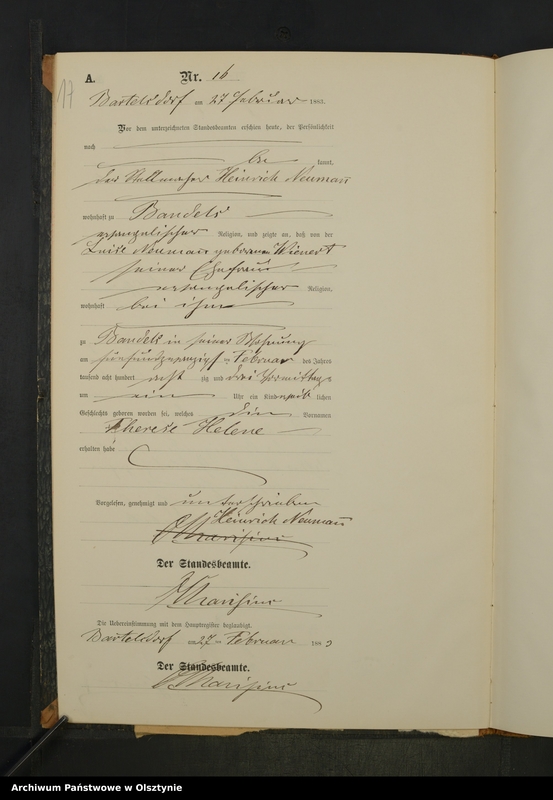 17
A. Nr. 16
Bartelsdorf am 27 Februar 1883.
Vor dem unterzeichneten Standesbeamten erschien heute, der Persönlichkeit
nach
be kannt,
der Stellmacher Heinrich Neumann
wohnhaft zu Bandels
evangelischer Religion, und zeigte an, daß von der
Luise Neumann geborenen Wienert
seiner Ehefrau
evangelischer Religion,
wohnhaft bei ihm
zu Bandels in seiner Wohnung
am fünfundzwanzigsten Februar des Jahres
tausend acht hundert acht zig und drei Vormittags
um ein Uhr ein Kind weib lichen
Geschlechts geboren worden sei, welches die Vornamen
Therese Helene
erhalten habe
Vorgelesen, genehmigt und unterschrieben
Heinrich Neumann
Der Standesbeamte.
Die Uebereinstimmung mit dem Hauptregister beglaubigt.
Bartelsdorf am 27 ten Februar 1883
Der Standesbeamte.
Archiwum Państwowe w Olsztynie